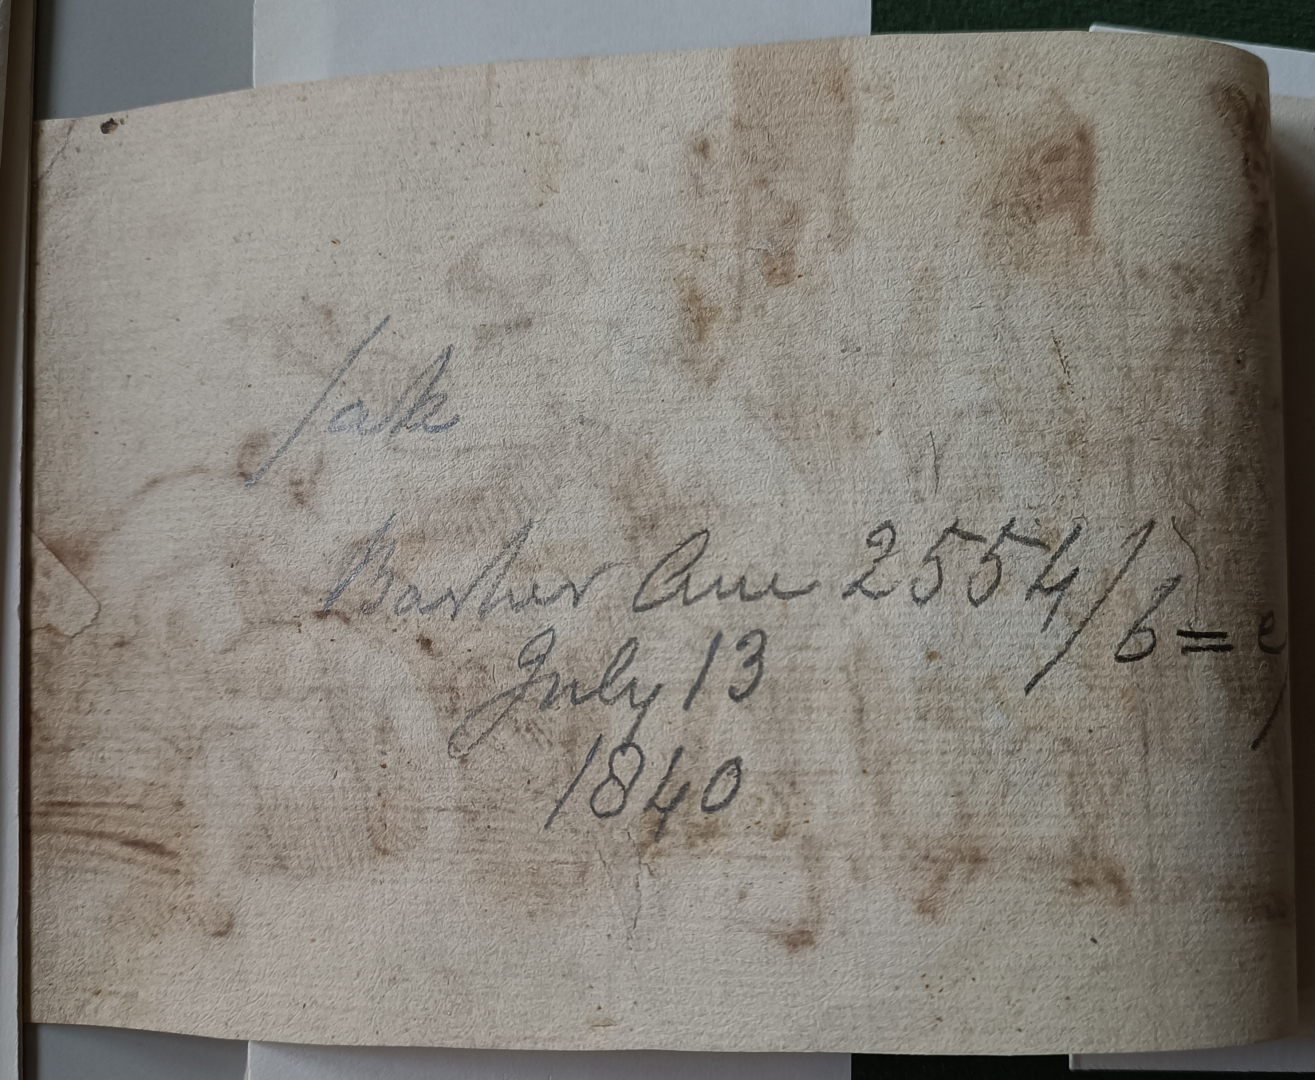 /ak
Barker Ave 2554/6=e/
July 13
1840